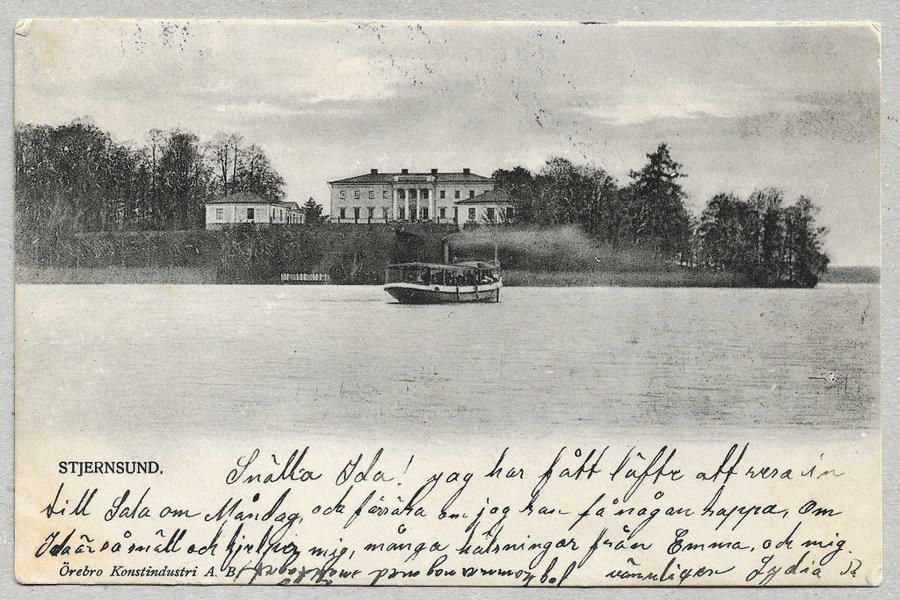 STJERNSUND.
Snälla Ida! jag har fått låfte att resa in
till Sala om Måndag, och försöka om jag kan få någan kappa, Om
Ida är så snäll och hjelper mig, många hälsningar från Emma, och mig.
Örebro Konstindustri A. B. vänligen Lydia